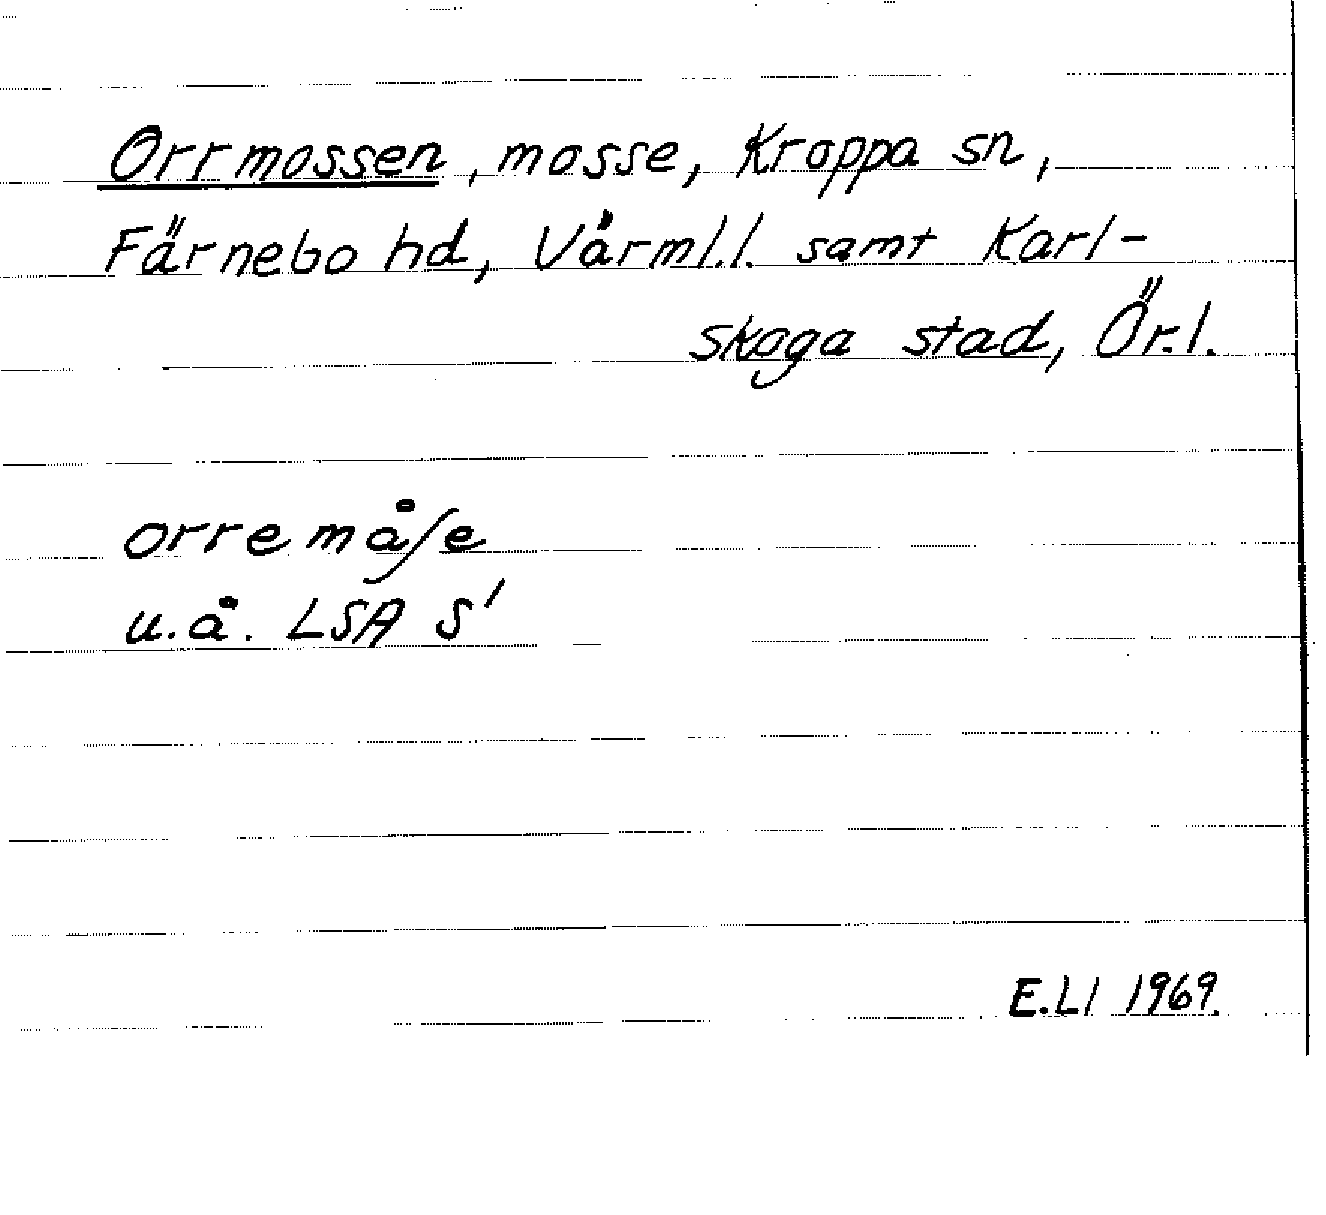 Orrmossen, mosse, Kroppa sn,
Färnebo hd, Värml.l. samt Karl-
skoga stad, Ör.l.
orremåſe
u.å. LSA S'
E.Ll 1969.